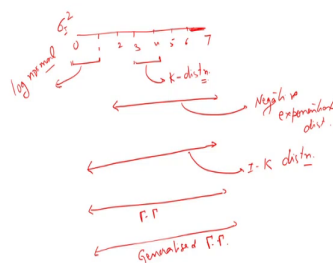 σ_s²
0 1 2 3 4 5 6 7
log normal
K-distn.
Negative
exponential
dist.
I-K distn.
Γ.Γ
Generalised Γ.Γ.